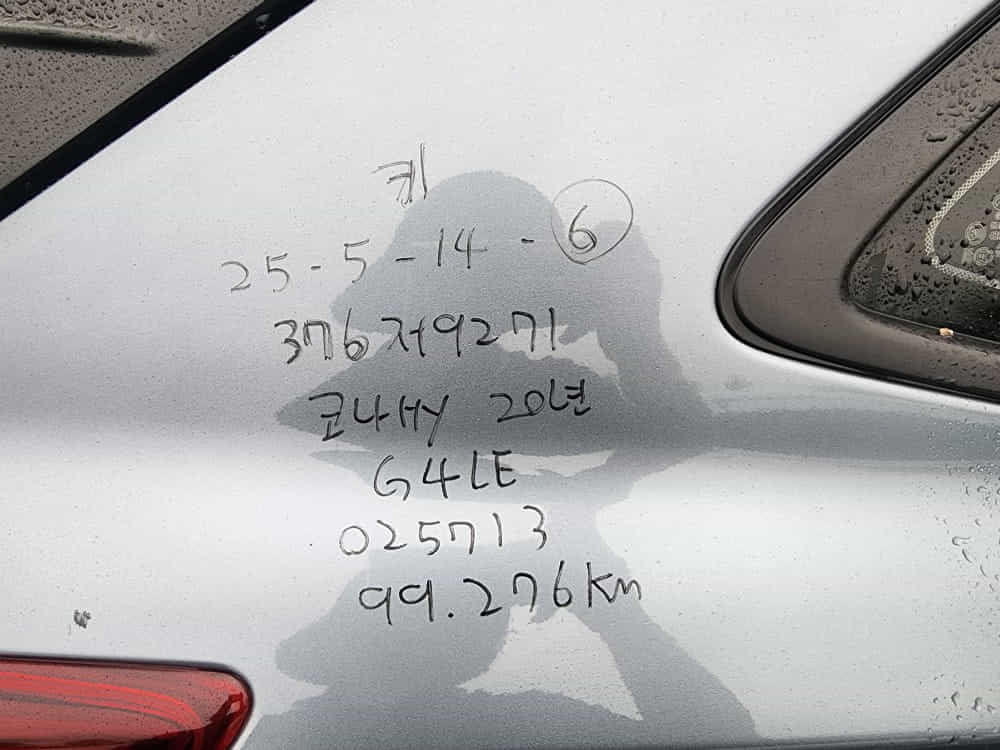 키
25-5-14-6
376저9271
코나HY 20년
G4LE
025713
99.276Km